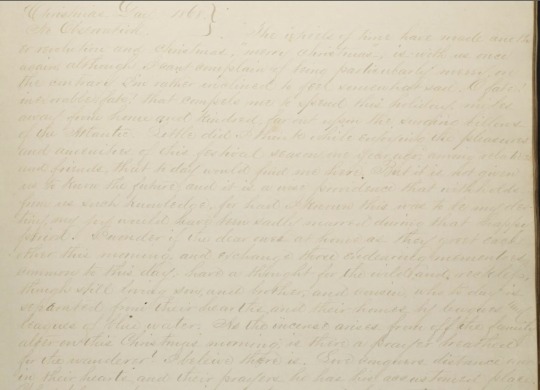 Christmas Day 1868. }
On Observation. } The wheels of time have made another
revolution and Christmas, "merry christmas," is with us once
again although I cant complain of being particularly merry, on
the contrary I'm rather inclined to feel somewhat sad. O fate!
inexorable fate! that compels me to spend this holiday, miles
away from home and kindred, far out upon the surging billows
of the Atlantic. Little did I think while enjoying the pleasures
and amenities of this festival season one year ago among relatives
and friends, that to day would find me here. But it is not given
us to know the future, and it is a wise providence that withholds
from us such knowledge, for had I known this was to be my destiny
my joy would have been sadly marred during that happy
period. I wonder if the dear ones at home as they greet each
other this morning and exchange those endearments
common to this day, have a thought for the wild and reckless
though still loving son, and brother, and cousin, who to day is
separated from their hearths and their homes, by leagues
leagues of blue water. As the incense arises from off the family
altar on this Christmas morning, is there a prayer breathed
for the wanderer? I believe there is. Give
in their hearts and their prayers he has his place